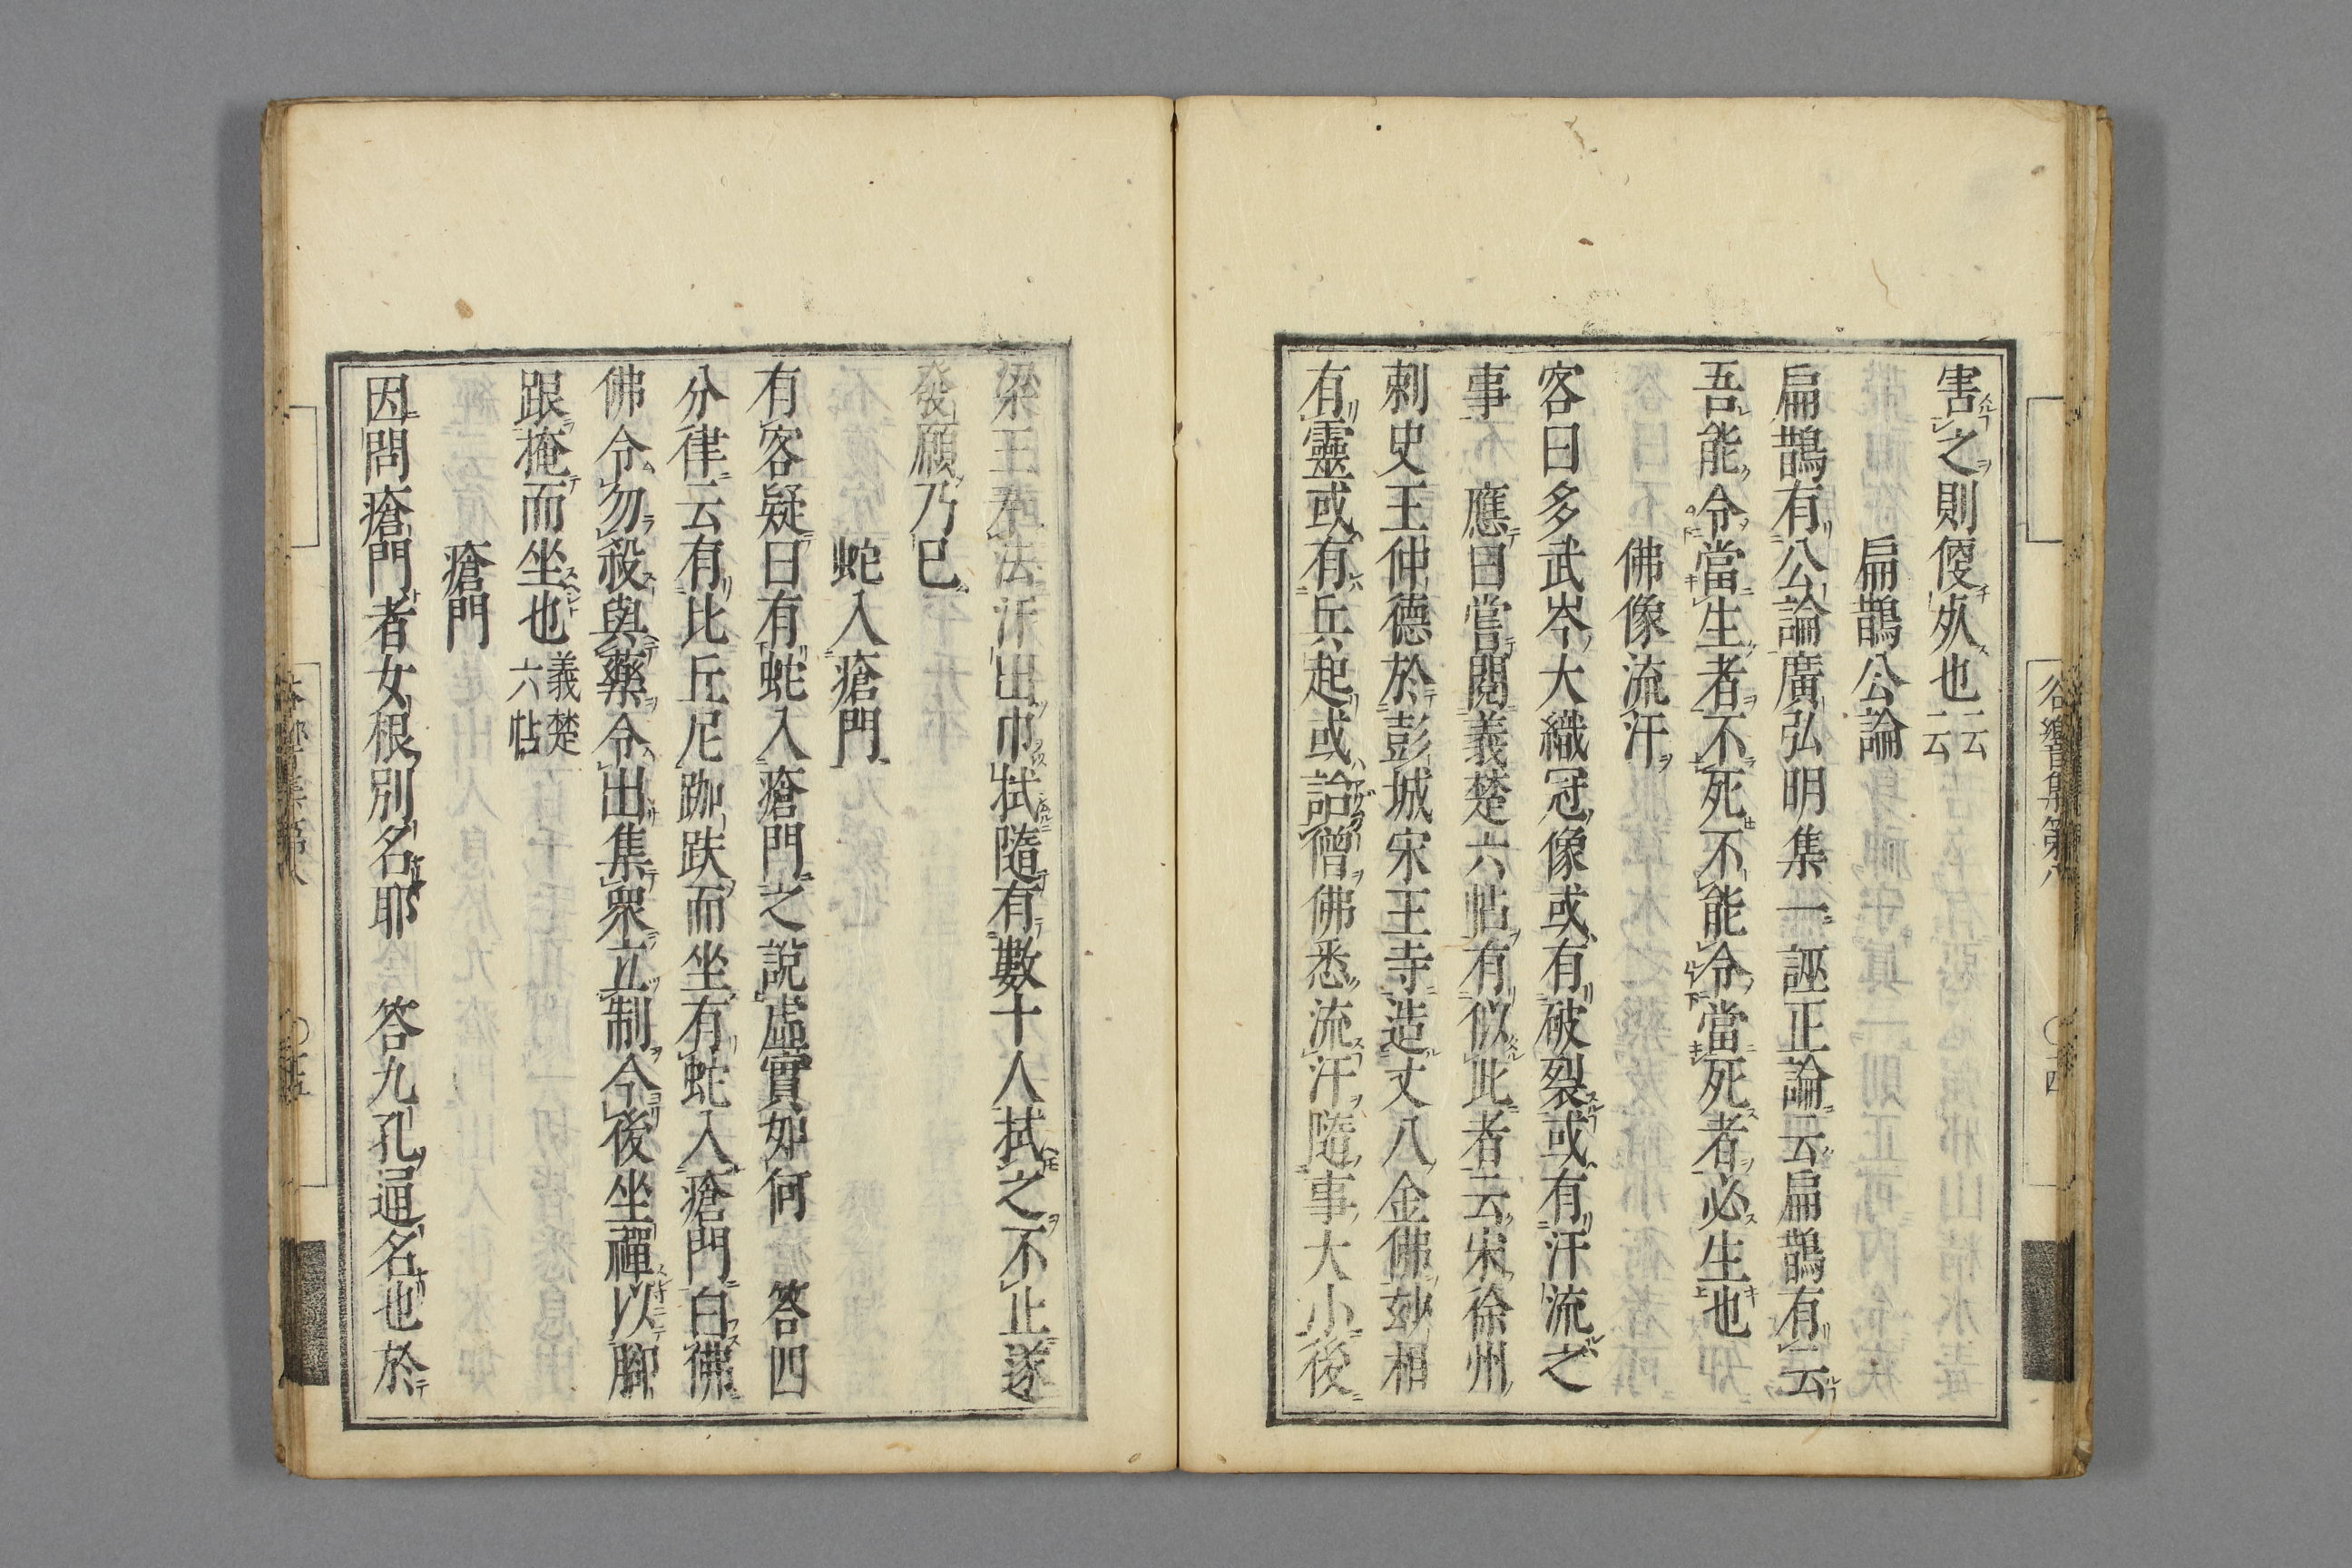 害之則便死也云云
扁鵲公論
扁鵲有公論廣弘明集一誣正論云扁鵲有云
吾能令當生者不死不能令當死者必生也
佛像流汗
客曰多武岑大織冠像或有破裂或有汗流之
事 應曰嘗閱義楚六帖有似此者云宋徐州
刺史王仲德於彭城宋王寺造丈八金佛玅相
有靈或有兵起或諂僧佛悉流汗隨事大小後
谷響集第八
〇十四
梁王奉法汗出巾拭隨有數十人拭之不止遂
發願乃已
蛇入瘡門
有客疑曰有蛇入瘡門之說虛實如何 答四
分律云有比丘尼跏趺而坐有蛇入瘡門白佛
佛令勿殺與藥令出集衆立制令後坐禪以脚
跟掩而坐也義楚六帖
瘡門
因問瘡門者女根別名耶 答九孔通名也於
谷響集第八
〇十五